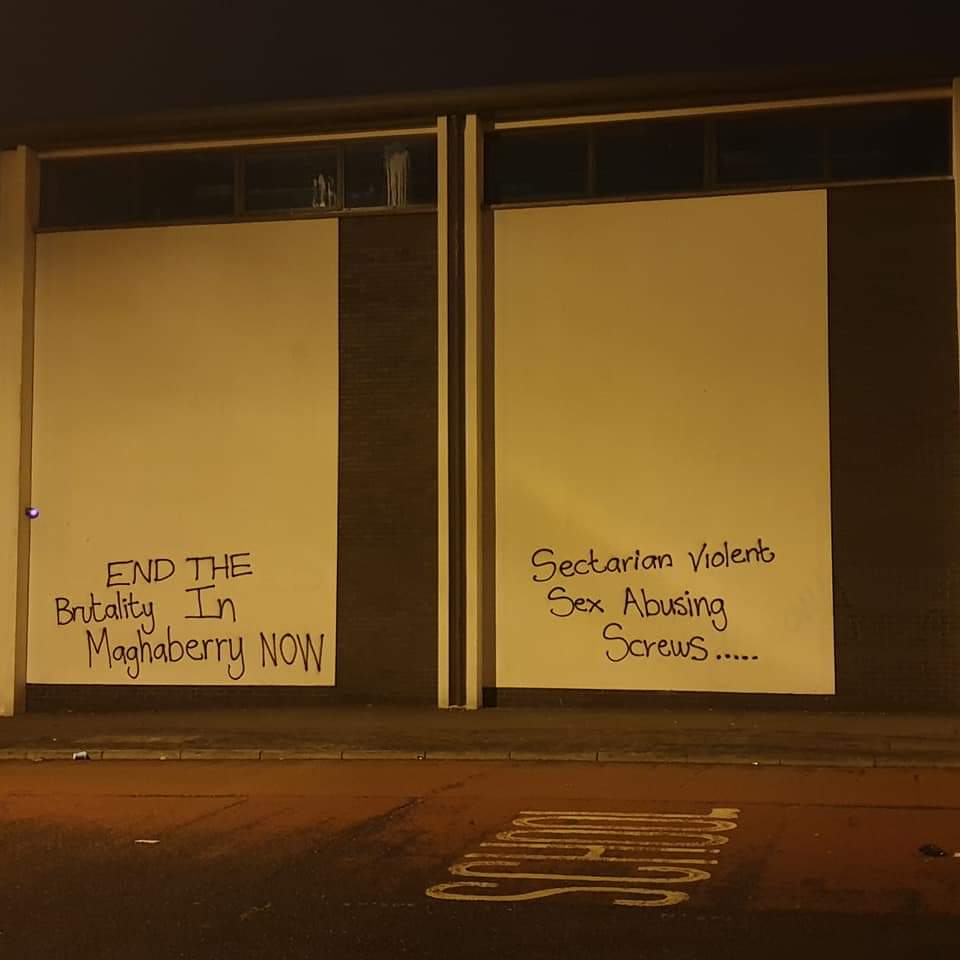 END THE
Brutality In
Maghaberry NOW
Sectarian Violent
Sex Abusing
Screws.....
SCHOOL